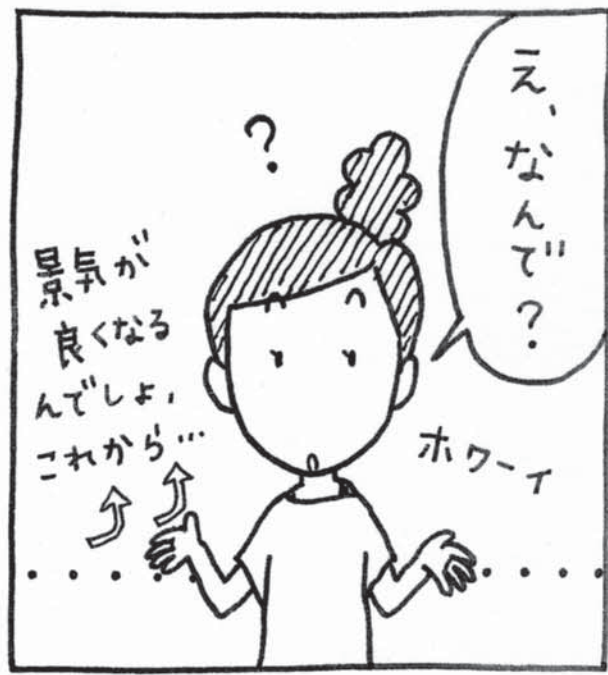 え、なんで？
？
景気が
良くなる
んでしょ、
これから…
ホワーイ